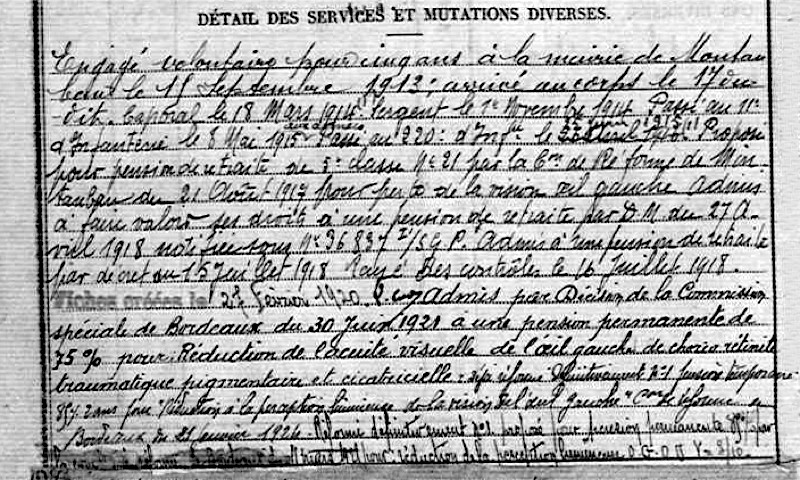 DÉTAIL DES SERVICES ET MUTATIONS DIVERSES.
Engagé volontaire pour cinq ans à la mairie de Montau
ban le 15 Septembre 1913; arrivé au corps le 17 du
dit. Caporal le 18 Mars 1914. Sergent le 1er Novembre 1914. Passé au 11e
d'Infanterie le 8 Mai 1915 Passé au 220e d'Inf.ie le 1915 Proposé
pour pension de retraite de 5e classe No 21 par la Con de Réforme de Mon
tauban du 21 Août 1917 pour perte de la vision œil gauche Admis
à faire valoir ses droits à une pension de retraite par D.M. du 27 A-
vril 1918 notifiée sous No 36837 S.G.P. Admis à une pension de retraite
par décret du 15 Juillet 1918 Rayé des contrôles le 16 Juillet 1918.
Fiches créées le 27 Février 1920. Admis par Décision de la Commission
spéciale de Bordeaux du 30 Juin 1921 à une pension permanente de
75% pour: Réduction de l'acuité visuelle de l'œil gauche de choréo rétinite
traumatique pigmentaire et cicatricielle définitivement No 1 pension temporaire
85% 2 ans pour réduction à la perception lumineuse de la vision de l'œil gauche Con de réforme de
Bordeaux du 21 1924. Réformé définitivement proposé pour pension permanente par
réduction de la perception lumineuse O.G. O.D. V=